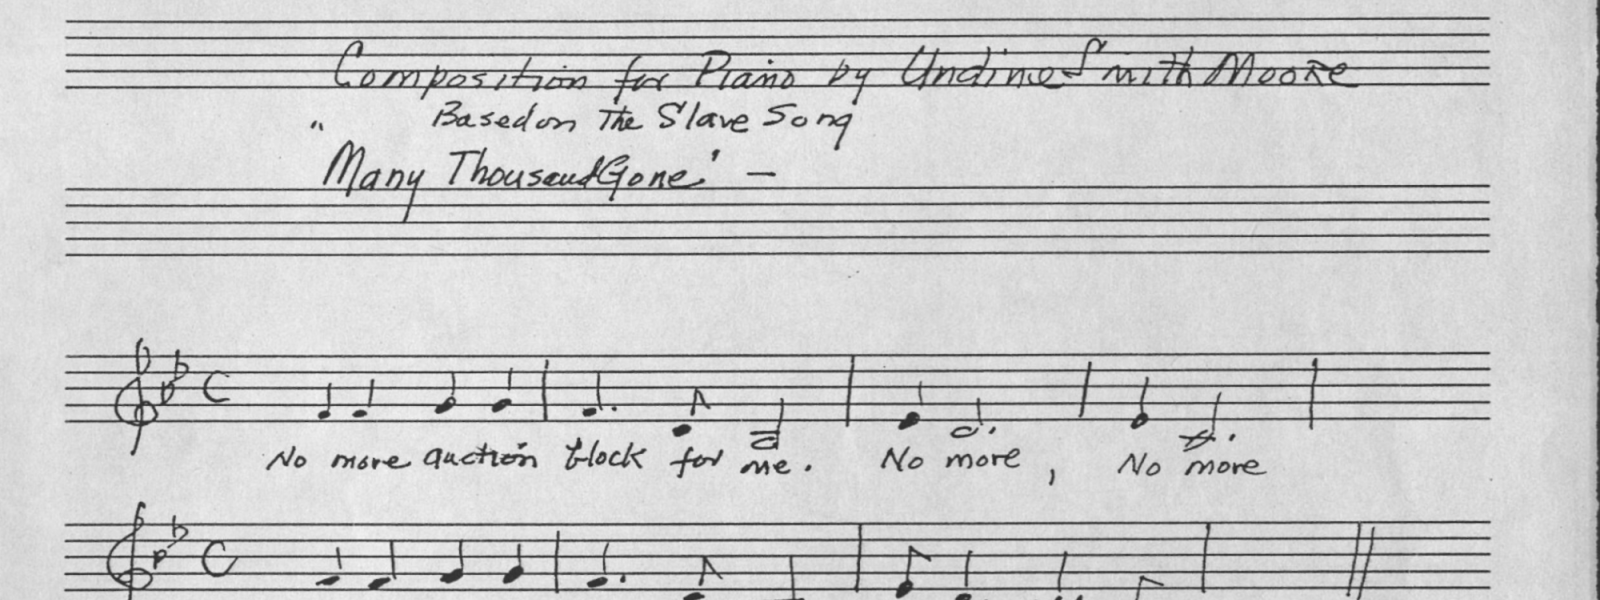 Composition for Piano by Undine Smith Moore
Based on The Slave Song
"Many Thousand Gone" —
No more auction block for me. No more, No more